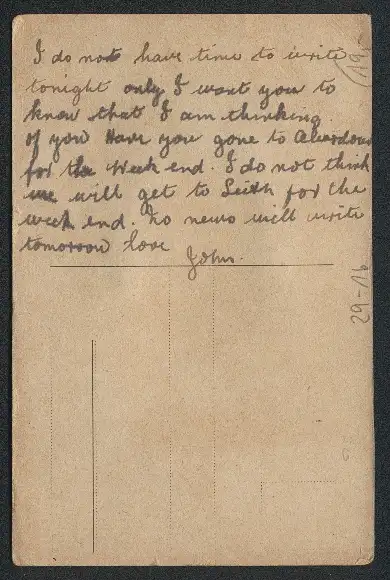 I do not have time to write
tonight only I want you to
know that I am thinking
of you Have you gone to Aberdour
for the week end. I do not think
we will get to Leith for the
week end. no news will write
tomorrow love
John.
29-16